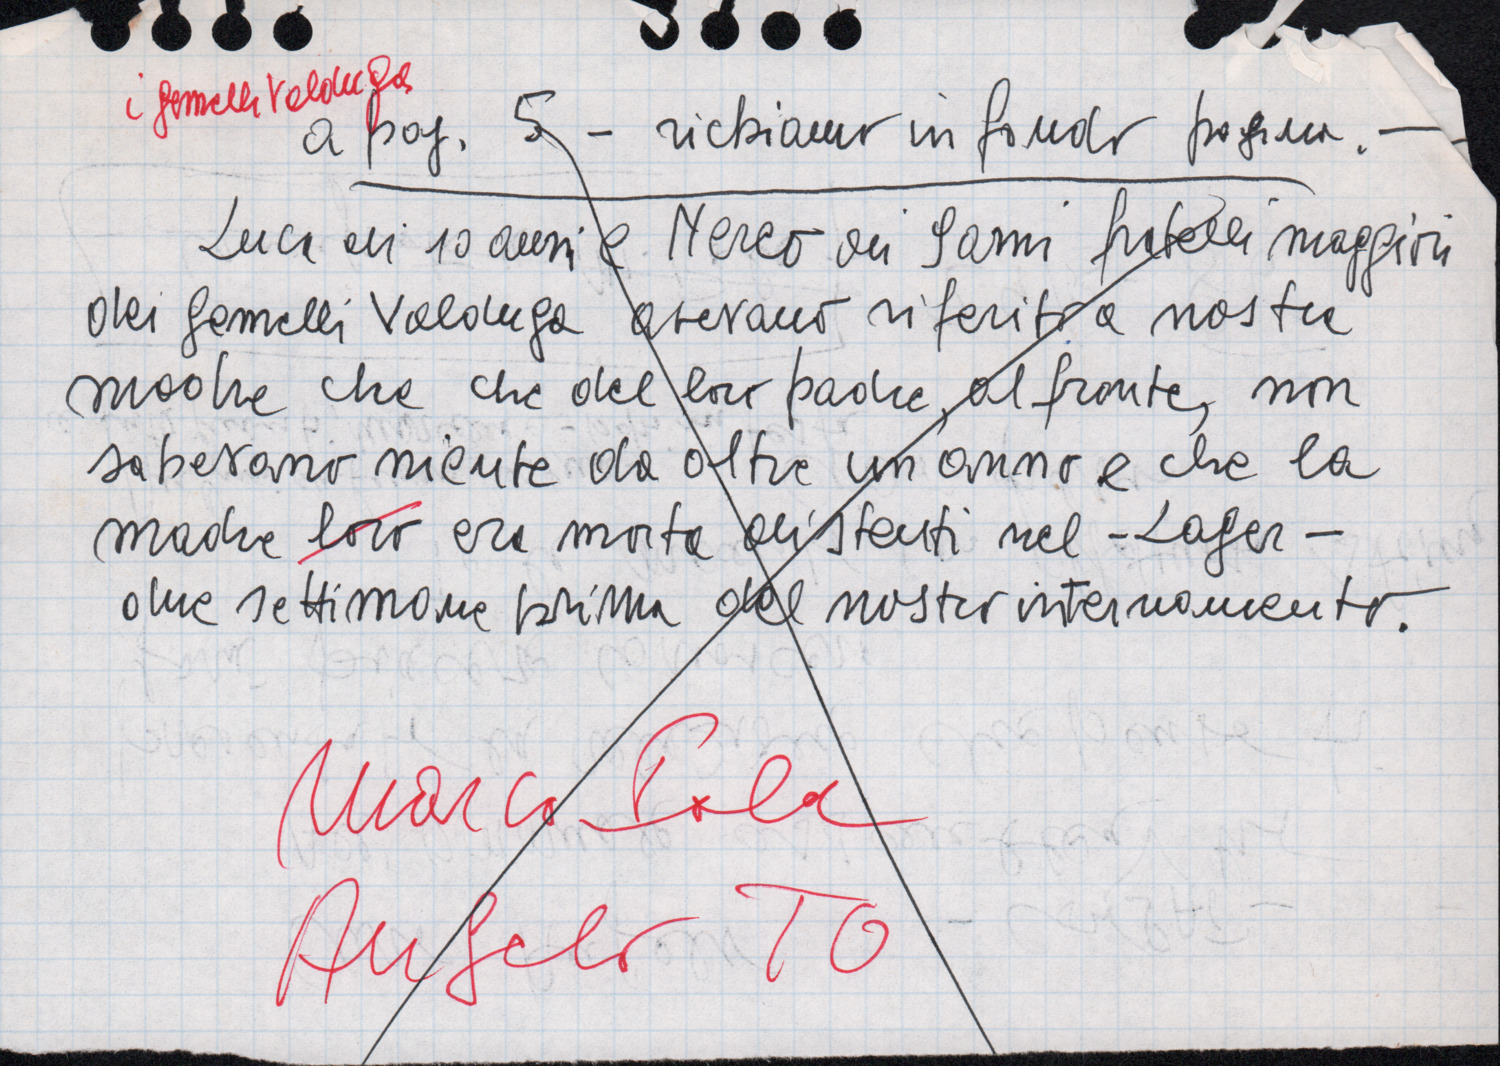 i gemelli Valduga
a pag. 5 - richiamo in fondo pagina. -
Luca di 10 anni e Nereo di 9 anni fratelli maggiori
dei gemelli Valduga avevano riferito a nostra
madre che che del loro padre, al fronte, non
sapevano niente da oltre un anno e che la
madre loro era morta di stenti nel - Lager -
due settimane prima del nostro internamento.
Marco Pola
Angelo TO